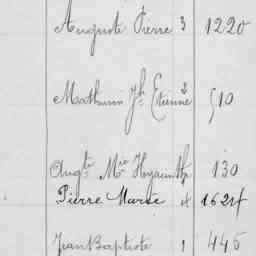 Auguste Pierre 3 1220
Mathurin Jh Etienne 2 510
Augte Mie Hyacinthe 130
Pierre Marie 4 1624
Jean Baptiste 1 445